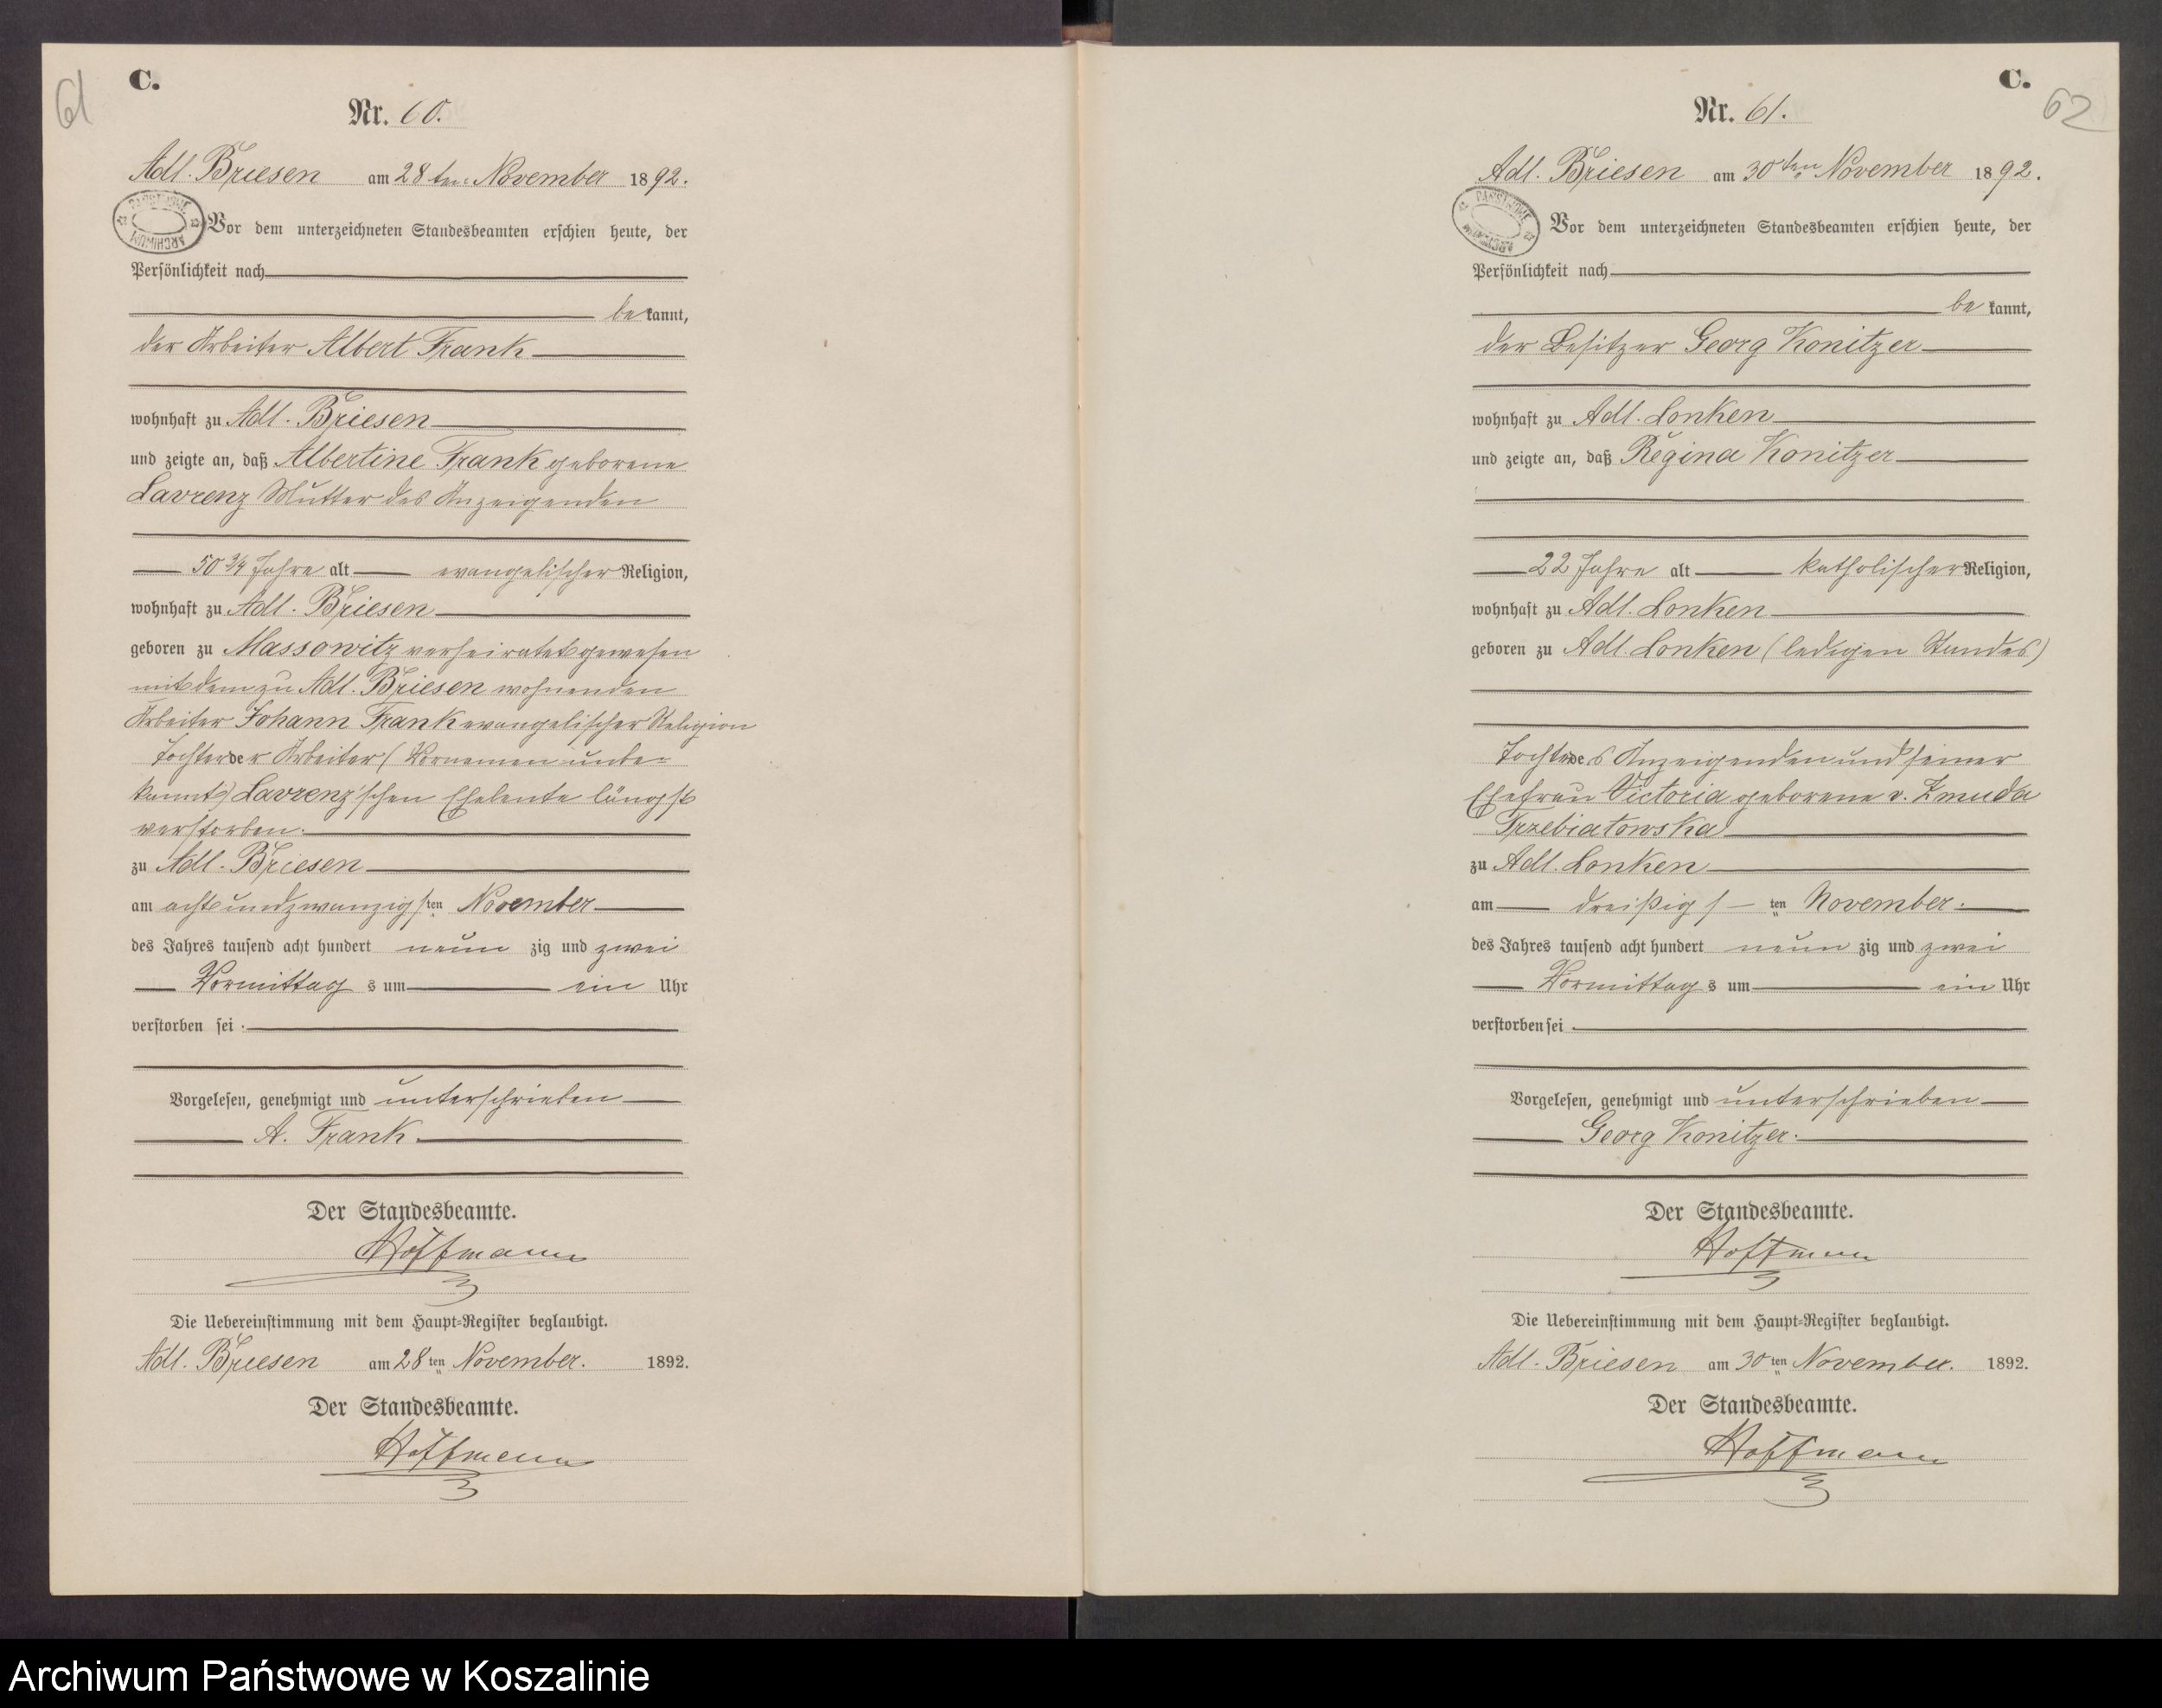 61
C.
Nr. 60.
Adl. Briesen am 28ten November 1892.
PAŃSTWOWE ARCHIWUM
Vor dem unterzeichneten Standesbeamten erschien heute, der
Persönlichkeit nach
be kannt,
der Arbeiter Albert Frank
wohnhaft zu Adl. Briesen
und zeigte an, daß Albertine Frank geborene
Lavrenz Mutter des Anzeigenden
50 3/4 Jahre alt evangelischer Religion,
wohnhaft zu Adl. Briesen
geboren zu Massowitz verheiratet gewesen
mit dem zu Adl. Briesen wohnenden
Arbeiter Johann Frank evangelischer Religion
Tochter der Arbeiter (Vornamen unbe=
kannt) Lavrenz'schen Eheleute längst
verstorben.
zu Adl. Briesen
am acht und zwanzigsten November
des Jahres tausend acht hundert neun zig und zwei
Vormittag s um ein Uhr
verstorben sei.
Vorgelesen, genehmigt und unterschrieben
A. Frank.
Der Standesbeamte.
Hoffmann
Die Uebereinstimmung mit dem Haupt=Register beglaubigt.
Adl. Briesen am 28ten November. 1892.
Der Standesbeamte.
Hoffmann
C.
62
Nr. 61.
Adl. Briesen am 30ten November 1892.
PAŃSTWOWE ARCHIWUM
Vor dem unterzeichneten Standesbeamten erschien heute, der
Persönlichkeit nach
be kannt,
der Besitzer Georg Konitzer
wohnhaft zu Adl. Lonken
und zeigte an, daß Regina Konitzer
22 Jahre alt katholischer Religion,
wohnhaft zu Adl. Lonken
geboren zu Adl. Lonken (ledigen Standes)
Tochter des Anzeigenden und seiner
Ehefrau Victoria geborene v. Zmuda
Trzebiatowska
zu Adl. Lonken
am dreißigs ten November.
des Jahres tausend acht hundert neun zig und zwei
Vormittag s um ein Uhr
verstorben sei.
Vorgelesen, genehmigt und unterschrieben
Georg Konitzer.
Der Standesbeamte.
Hoffmann
Die Uebereinstimmung mit dem Haupt=Register beglaubigt.
Adl. Briesen am 30ten November. 1892.
Der Standesbeamte.
Hoffmann
Archiwum Państwowe w Koszalinie